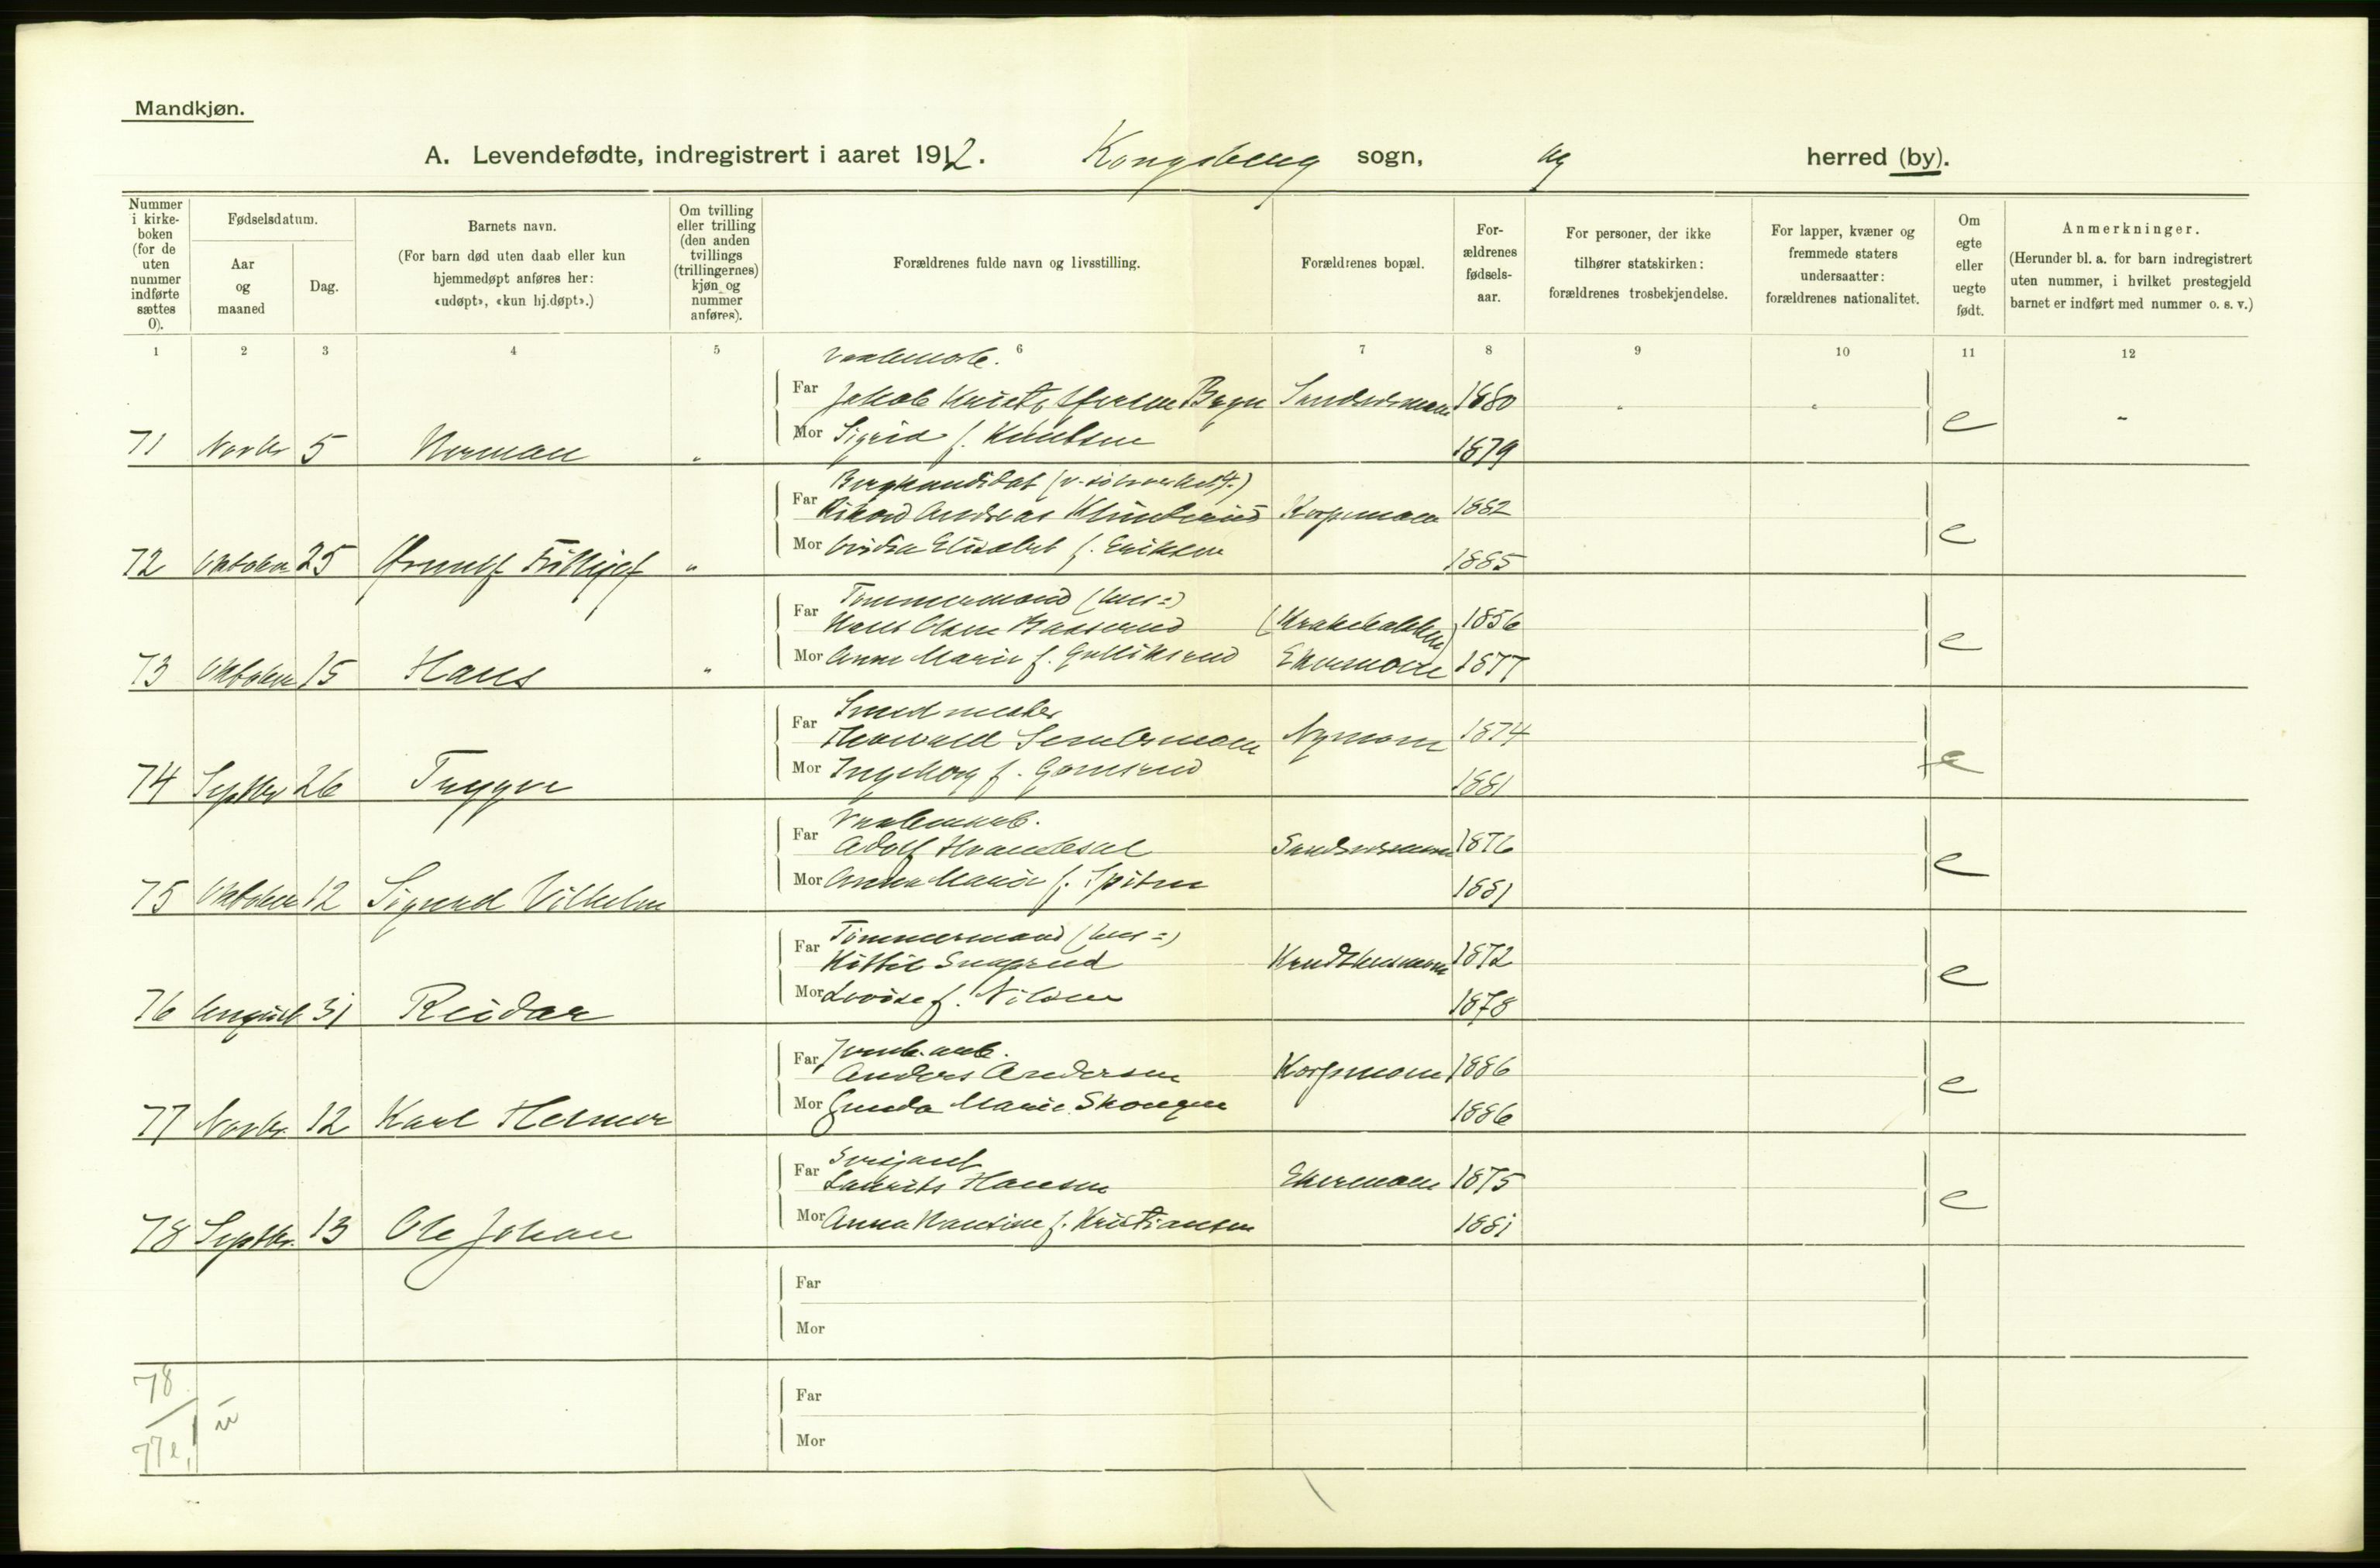 Mandkjøn.
A. Levendefødte, indregistrert i aaret 1912. Kongsberg sogn, og herred (by).
Nummer i kirke-boken (for de uten nummer indførte sættes 0).
Fødselsdatum.
Aar og maaned
Dag.
Barnets navn.
(For barn død uten daab eller kun hjemmedøpt anføres her: «udøpt», «kun hj.døpt».)
Om tvilling eller trilling (den anden tvillings (trillingernes) kjøn og nummer anføres).
Forældrenes fulde navn og livsstilling.
Forældrenes bopæl.
For-ældrenes fødsels-aar.
For personer, der ikke tilhører statskirken: forældrenes trosbekjendelse.
For lapper, kvæner og fremmede staters undersaatter: forældrenes nationalitet.
Om egte eller uegte født.
Anmerkninger.
(Herunder bl. a. for barn indregistrert uten nummer, i hvilket prestegjeld barnet er indført med nummer o. s. v.)
1 2 3 4 5 6 7 8 9 10 11 12
Far Jakob 1880
Mor Sigrid f. Knutsen 1879
71 Novbr 5 Norman " e
Bergkandidat
Far Andreas Korpmoen 1882
Mor Elisabet f. Eriksen 1885
72 Oktober 25 " e
Tømmermand (hus=)
Far Hans Olsen (Krakebakken) 1856
Mor Anne Marie f. Gulliksrud Ekermoen 1877
73 Oktober 15 Hans " e
Smedmester
Far Thorvald Nymoen 1874
Mor Ingeborg f. Gamsrud 1881
74 Septbr 26 Trygve e
Far Adolf 1876
Mor Anna Marie f. 1881
75 Oktober 12 Sigurd Vilhelm e
Tømmermand (hus=)
Far Kittil 1872
Mor Lovise f. Nilsen 1878
76 August 31 Reidar e
Jernb.arb.
Far Anders Andersen Korpmoen 1886
Mor Gunda Marie Skougen 1886
77 Novbr. 12 Karl Helmer e
Sersjant
Far Laurits Hansen Ekermoen 1875
Mor Anna Hansine f. Kristiansen 1881
78 Septbr. 13 Ole Johan e
Far
Mor
78
Far
77 e, 1 u
Mor